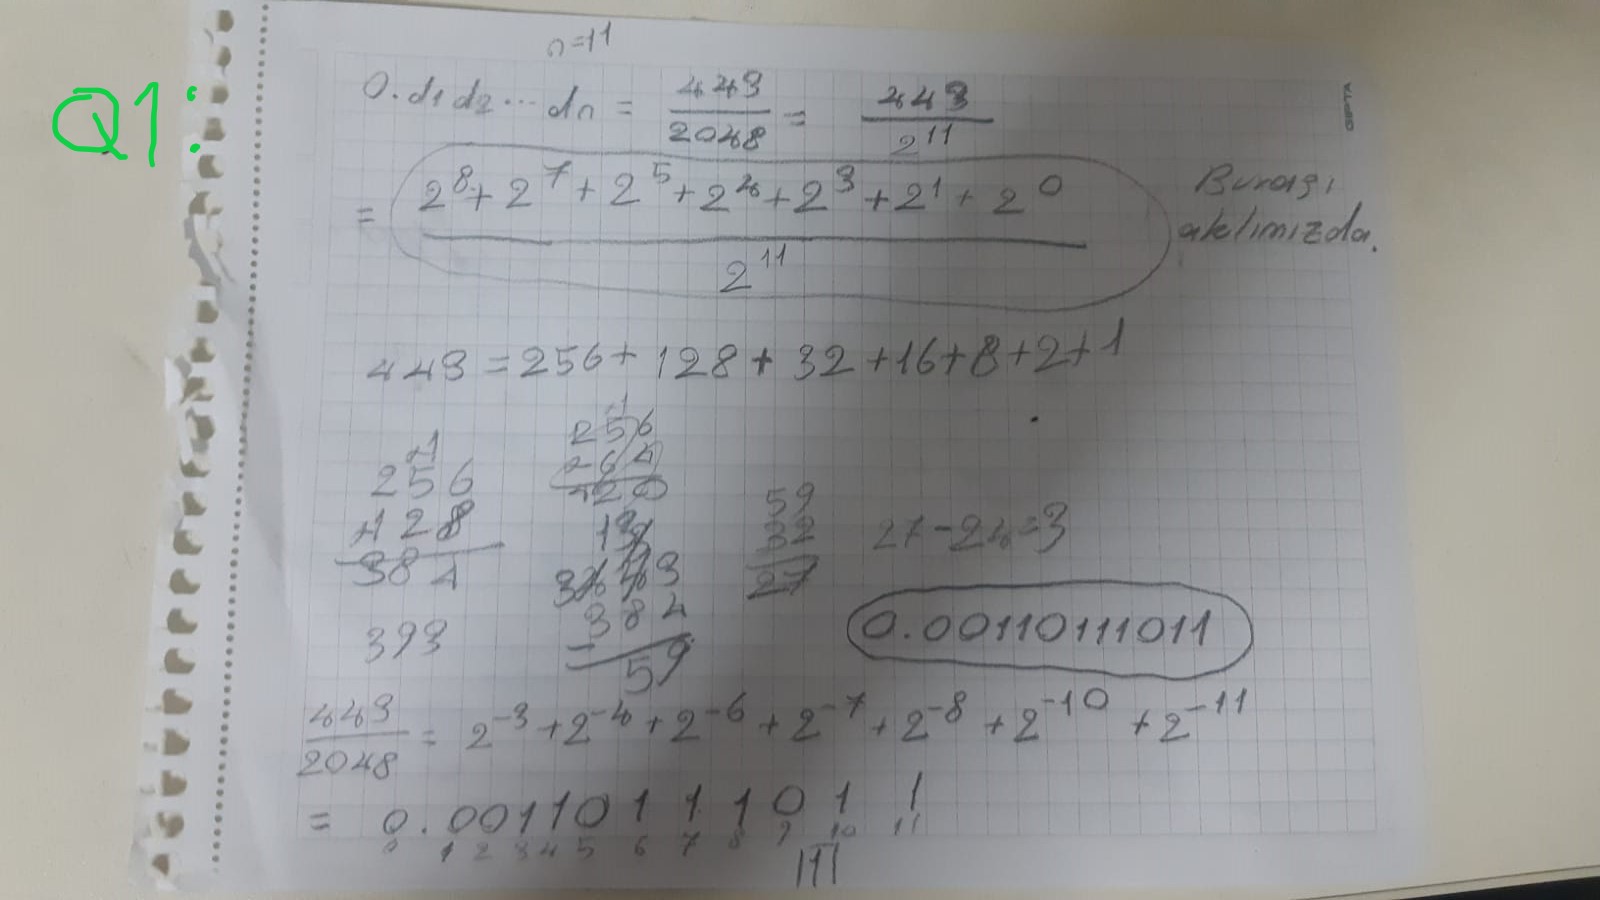 Q1:
n=11
0.d1d2...dn = 443/2048 = 443/2^11
= (2^8+2^7+2^5+2^4+2^3+2^1+2^0)/2^11
Burası
aklımızda.
443=256+128+32+16+8+2+1
256
128
384
393
256
64
443
-384
59
59
32
27
27-24=3
0.00110111011
443/2048 = 2^-3+2^-4+2^-6+2^-7+2^-8+2^-10+2^-11
= 0.00110111011
0 1 2 3 4 5 6 7 8 9 10 11
GIPTA